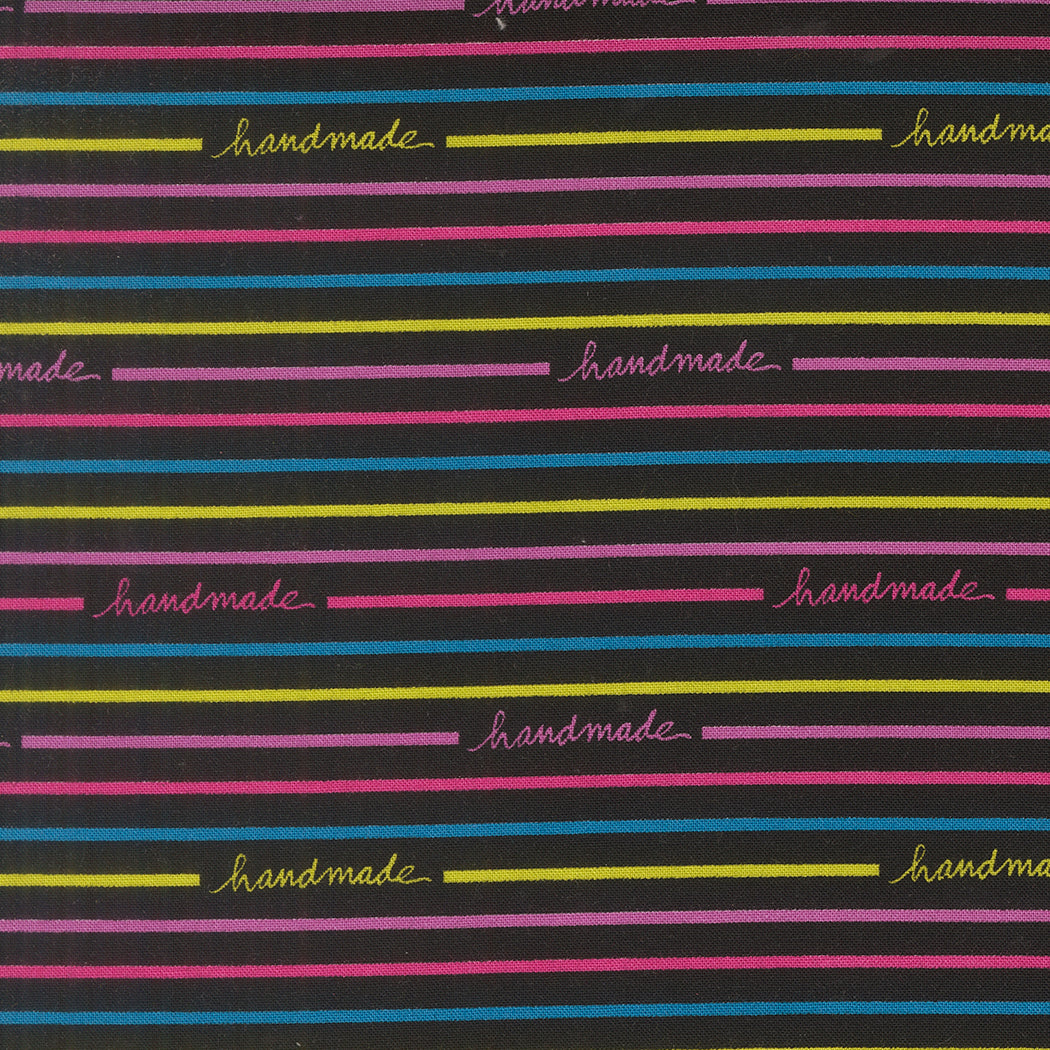 handmade
handmade handma
made handmade
handmade handmade
handmade
handmade handma